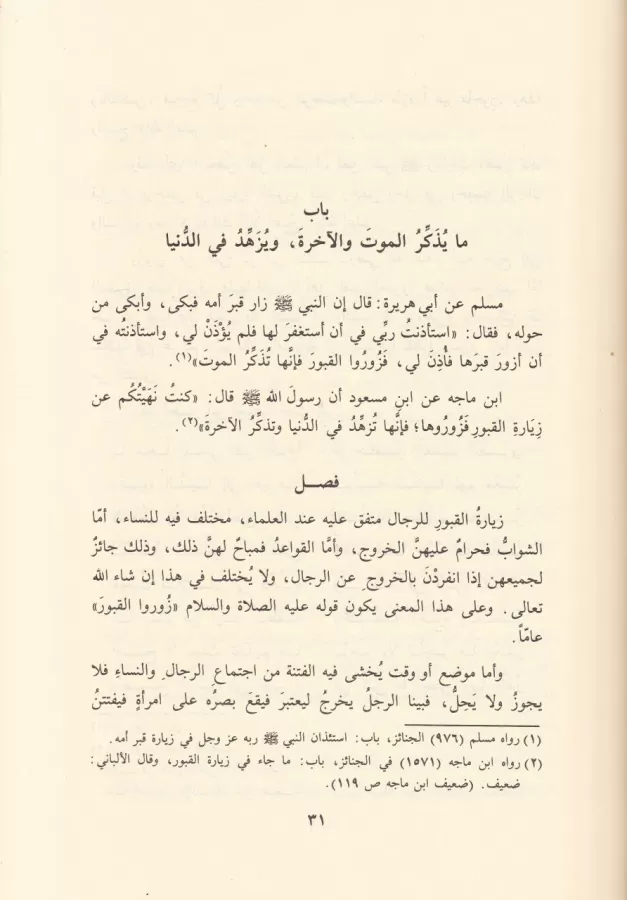 باب
ما يُذَكِّرُ الموتَ والآخرةَ، ويُزَهِّدُ في الدُّنيا
مسلم عن أبي هريرة: قال إن النبي ﷺ زار قبرَ أمه فبكى، وأبكى من
حوله، فقال: «استأذنتُ ربِّي في أن أستغفرَ لها فلم يُؤْذَنْ لي، واستأذنتُه في
أن أزورَ قبرَها فأُذِنَ لي، فَزُورُوا القبورَ فإنَّها تُذَكِّرُ الموتَ»(١).
ابن ماجه عن ابنِ مسعود أن رسولَ الله ﷺ قال: «كنتُ نَهَيْتُكُم عن
زِيَارةِ القبورِ فَزُورُوها؛ فإنَّها تُزهِّدُ في الدُّنيا وتذكِّرُ الآخرةَ»(٢).
فصـل
زيارةُ القبورِ للرجال متفق عليه عند العلماء، مختلف فيه للنساء، أمَّا
الشوابُّ فحرامٌ عليهنَّ الخروج، وأمَّا القواعدُ فمباحٌ لهنَّ ذلك، وذلك جائزٌ
لجميعهن إذا انفردْنَ بالخروجِ عن الرجال، ولا يُختلف في هذا إن شاء الله
تعالى. وعلى هذا المعنى يكون قوله عليه الصلاة والسلام «زُوروا القبورَ»
عامّاً.
وأما موضع أو وقت يُخشى فيه الفتنة من اجتماعِ الرجالِ والنساءِ فلا
يجوزُ ولا يَحِلُّ، فبينا الرجلُ يخرجُ ليعتبرَ فيقعَ بصرُه على امرأةٍ فيفتتنُ
(١) رواه مسلم (٩٧٦) الجنائز، باب: استئذان النبي ﷺ ربه عز وجل في زيارة قبر أمه.
(٢) رواه ابن ماجه (١٥٧١) في الجنائز، باب: ما جاء في زيارة القبور، وقال الألباني:
ضعيف. (ضعيف ابن ماجه ص ١١٩).
٣١